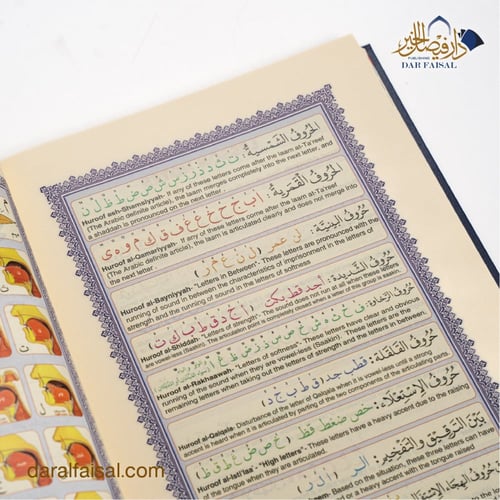 دار فيصل الخير
PUBLISHING
DAR FAISAL
الحُرُوفُ الشَّمْسِيَّةُ: ت ث د ذ ر ز س ش ص ض ط ظ ل ن
Huroof ash-Shamsiyyah- If any of these letters come after the laam al-Ta'reef
(The Arabic definite article), the laam merges completely into the next letter, and
a shaddah is pronounced on the next letter
الحُرُوفُ القَمَرِيَّةُ: ا ب ج ح خ ع غ ف ق ك م و ه ي
Huroof al-Qamariyyah- If any of these letters come after the laam al-Ta'reef
(The Arabic definite article), the laam is articulated clearly and does not merge into
the next letter
حُرُوفُ البَيْنِيَّةِ: لن عمر (ل ن ع م ر)
Huroof al-Bayniyyah- "Letters in Between". These letters are pronounced with the
running of sound in between the characteristics of imprisonment in the letters of
strength and the running of sound in the letters of softness
حُرُوفُ الشَّدِيدَةِ: اجد قط بكت (ا ج د ق ط ب ك ت)
Huroof al-Shiddah- "Letters of strength". The sound does not run at all when these letters
are vowel-less (Saakin). The articulation point is completely closed when a letter of this group is saakin.
حُرُوفُ الرخاوة: ث ح خ ذ ز س ش ص ض ظ غ ف
Huroof al-Rakhaawah- "Letters of softness". These letters have clear and obvious
running of sound when they are vowel-less (Saakin). These letters are the
remaining letters when taking out the letters of strength and the letters in between.
حُرُوفُ القَلْقَلَةِ: قطب جد (ق ط ب ج د)
Huroof al-Qalqala- Disturbance of the letter of Qalqala when it is vowel-less until a strong
accent is heard when it is articulated by parting of the two components of the articulating parts.
حُرُوفُ الاِسْتِعْلَاءِ: خص ضغط قظ (خ ص ض غ ط ق ظ)
Huroof al-Isti'laa "High letters". These letters have a heavy accent due to the raising
of the tongue when they are articulated.
بَيْنَ التَّرْقِيقِ وَالتَّفْخِيمِ: الر (ا ل ر)
Based on the situation, these three letters can have
daralfaisal.com